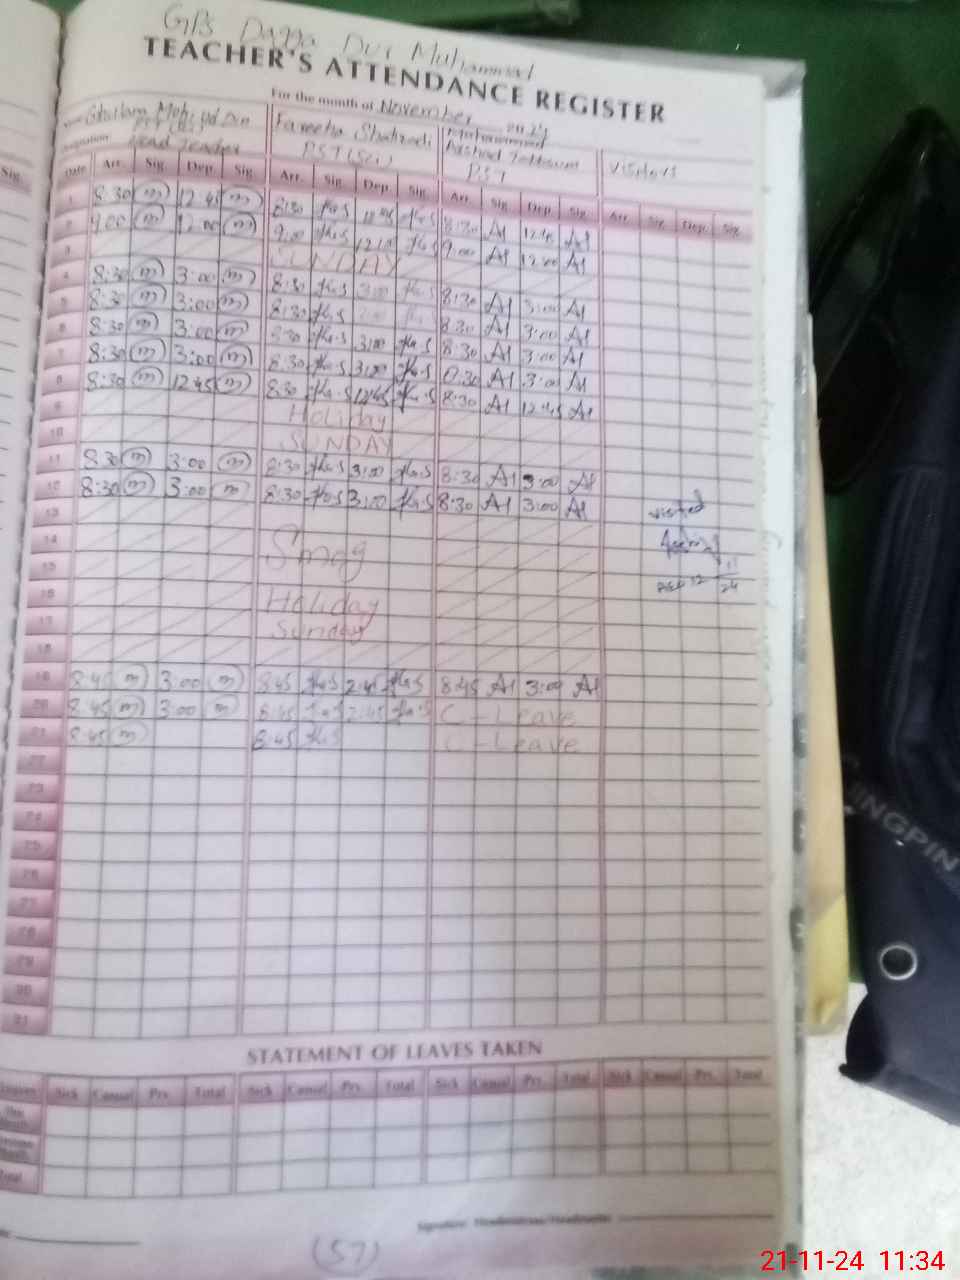 GPS Dagga Dur Muhammad
TEACHER'S ATTENDANCE REGISTER
For the month of November 2024
Ghulam Mohi ud Din Fareeha Shahzadi Muhammad
Head Teacher PST (Sci) Arshad PST Visitors
Date Arr. Sig. Dep. Sig. Arr. Sig. Dep. Sig. Arr. Sig. Dep. Sig. Arr. Sig. Dep. Sig.
1 8:30 m 12:45 m 8:30 12:45 8:30 A1 12:45 A1
2 9:00 m 12:00 m 9:00 12:00 9:00 A1 12:00 A1
3 SUNDAY
4 8:30 m 3:00 m 8:30 3:00 8:30 A1 3:00 A1
5 8:30 m 3:00 m 8:30 3:00 8:30 A1 3:00 A1
6 8:30 m 3:00 m 8:30 3:00 8:30 A1 3:00 A1
7 8:30 m 3:00 m 8:30 3:00 8:30 A1 3:00 A1
8 8:30 m 12:45 m 8:30 12:45 8:30 A1 12:45 A1
9 Holiday
10 SUNDAY
11 8:30 m 3:00 m 8:30 3:00 8:30 A1 3:00 A1
12 8:30 m 3:00 m 8:30 3:00 8:30 A1 3:00 A1 visited
13
14 Smog
15 12 11 24
16 Holiday
17 Sunday
18
19 8:45 m 3:00 m 8:45 2:45 8:45 A1 3:00 A1
20 8:45 m 3:00 m 8:45 2:45 C-Leave
21 8:45 m 8:45 C-Leave
22
23
24
25
26
27
28
29
30
31
STATEMENT OF LEAVES TAKEN
Leaves Sick Casual Prv. Total Sick Casual Prv. Total Sick Casual Prv. Total Sick Casual Prv. Total
Total
Signature Headmistress/Headmaster
(57)
KINGPIN
21-11-24 11:34